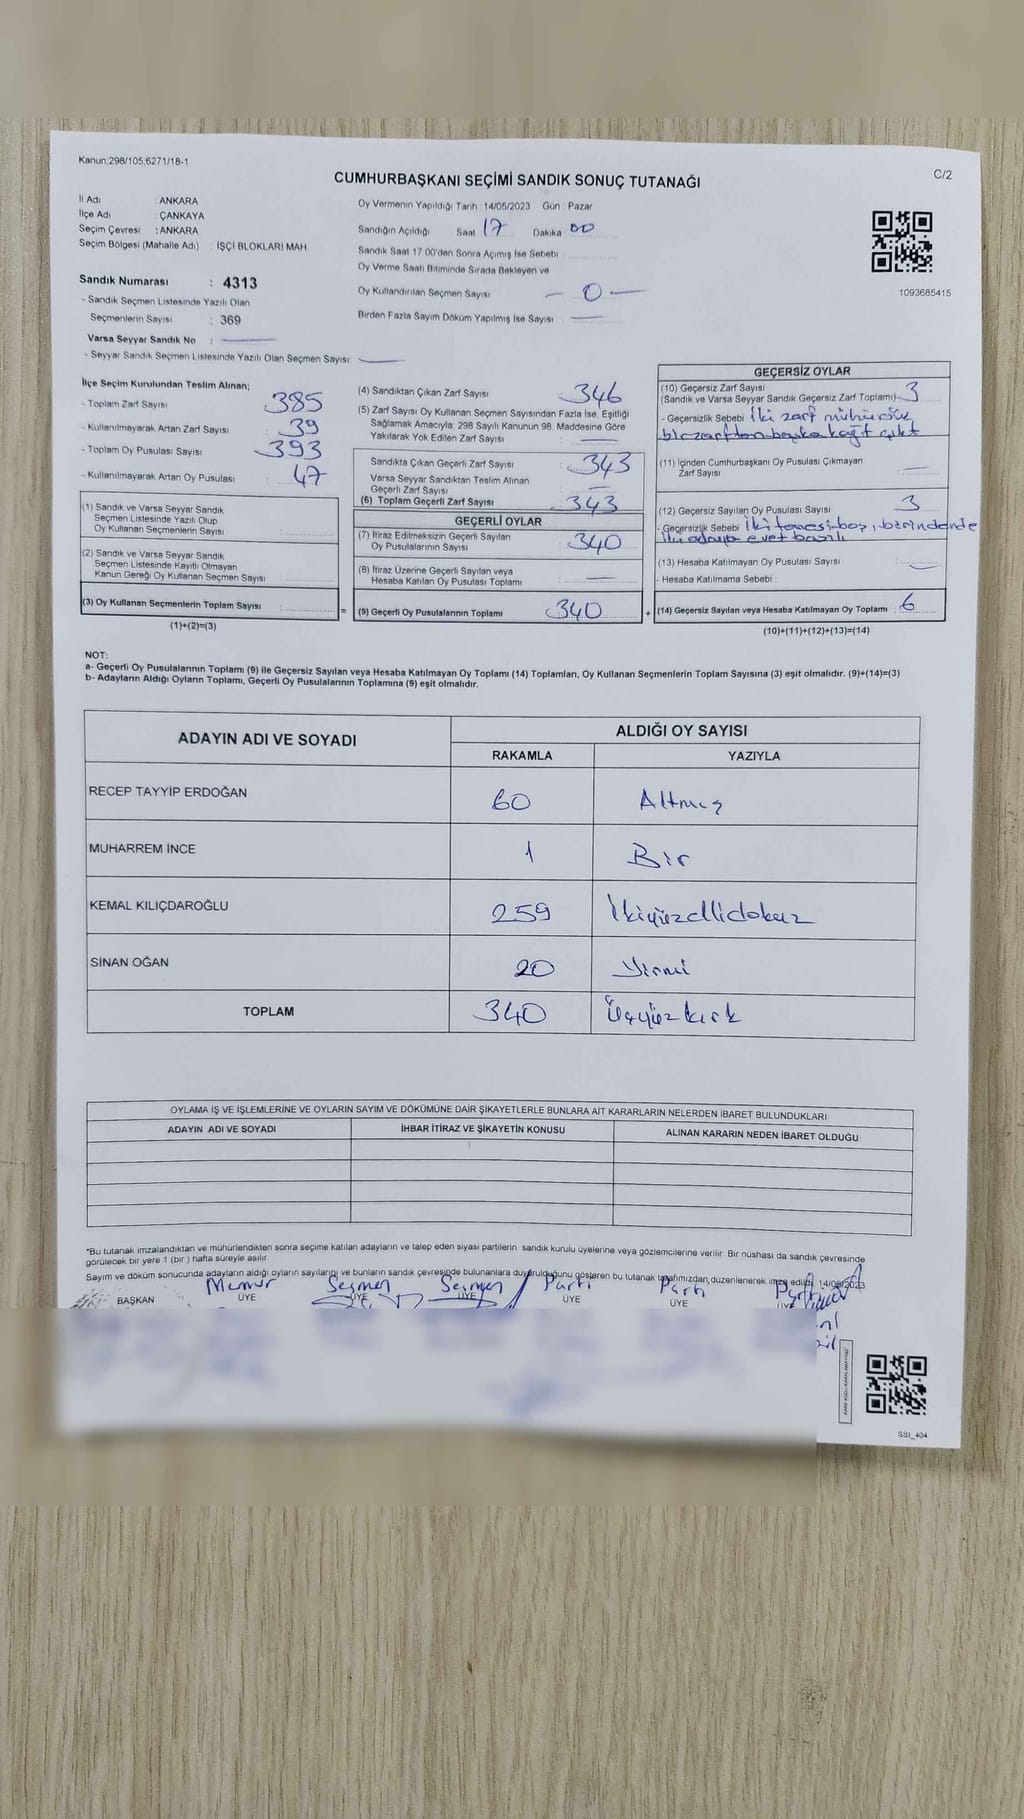 Kanun:298/105,6271/18-1
C/2
CUMHURBAŞKANI SEÇİMİ SANDIK SONUÇ TUTANAĞI
İl Adı : ANKARA
İlçe Adı : ÇANKAYA
Seçim Çevresi : ANKARA
Seçim Bölgesi (Mahalle Adı) : İŞÇİ BLOKLARI MAH.
Sandık Numarası : 4313
- Sandık Seçmen Listesinde Yazılı Olan
Seçmenlerin Sayısı : 369
Varsa Seyyar Sandık No :
- Seyyar Sandık Seçmen Listesinde Yazılı Olan Seçmen Sayısı :
Oy Vermenin Yapıldığı Tarih : 14/05/2023 Gün : Pazar
Sandığın Açıldığı Saat 17 Dakika 00
Sandık Saat 17:00'den Sonra Açımış İse Sebebi
Oy Verme Saati Bitiminde Sırada Bekleyen ve
Oy Kullandırılan Seçmen Sayısı - 0 -
Birden Fazla Sayım Döküm Yapılmış İse Sayısı :
1093685415
İlçe Seçim Kurulundan Teslim Alınan;
- Toplam Zarf Sayısı : 385
- Kullanılmayarak Artan Zarf Sayısı : 39
- Toplam Oy Pusulası Sayısı : 393
- Kullanılmayarak Artan Oy Pusulası : 47
(1) Sandık ve Varsa Seyyar Sandık
Seçmen Listesinde Yazılı Olup
Oy Kullanan Seçmenlerin Sayısı :
(2) Sandık ve Varsa Seyyar Sandık
Seçmen Listesinde Kayıtlı Olmayan
Kanun Gereği Oy Kullanan Seçmen Sayısı :
(3) Oy Kullanan Seçmenlerin Toplam Sayısı :
(1)+(2)=(3)
(4) Sandıktan Çıkan Zarf Sayısı : 346
(5) Zarf Sayısı Oy Kullanan Seçmen Sayısından Fazla İse, Eşitliği
Sağlamak Amacıyla, 298 Sayılı Kanunun 98. Maddesine Göre
Yakılarak Yok Edilen Zarf Sayısı :
Sandıkta Çıkan Geçerli Zarf Sayısı : 343
Varsa Seyyar Sandıktan Teslim Alınan
Geçerli Zarf Sayısı :
(6) Toplam Geçerli Zarf Sayısı : 343
GEÇERLİ OYLAR
(7) İtiraz Edilmeksizin Geçerli Sayılan
Oy Pusulalarının Sayısı : 340
(8) İtiraz Üzerine Geçerli Sayılan veya
Hesaba Katılan Oy Pusulası Toplamı :
= (9) Geçerli Oy Pusulalarının Toplamı : 340
GEÇERSİZ OYLAR
(10) Geçersiz Zarf Sayısı
(Sandık ve Varsa Seyyar Sandık Geçersiz Zarf Toplamı) : 3
- Geçersizlik Sebebi İki zarf mühürsüz
bir zarftan başka kağıt çıktı
(11) İçinden Cumhurbaşkanı Oy Pusulası Çıkmayan
Zarf Sayısı :
(12) Geçersiz Sayılan Oy Pusulası Sayısı : 3
- Geçersizlik Sebebi İki tanesi boş, birindende
iki adaya evet basılı
(13) Hesaba Katılmayan Oy Pusulası Sayısı :
- Hesaba Katılmama Sebebi :
+ (14) Geçersiz Sayılan veya Hesaba Katılmayan Oy Toplamı : 6
(10)+(11)+(12)+(13)=(14)
NOT:
a- Geçerli Oy Pusulalarının Toplamı (9) ile Geçersiz Sayılan veya Hesaba Katılmayan Oy Toplamı (14) Toplamları, Oy Kullanan Seçmenlerin Toplam Sayısına (3) eşit olmalıdır. (9)+(14)=(3)
b- Adayların Aldığı Oyların Toplamı, Geçerli Oy Pusulalarının Toplamına (9) eşit olmalıdır.
ADAYIN ADI VE SOYADI ALDIĞI OY SAYISI
RAKAMLA YAZIYLA
RECEP TAYYİP ERDOĞAN 60 Altmış
MUHARREM İNCE 1 Bir
KEMAL KILIÇDAROĞLU 259 İkiyüzellidokuz
SİNAN OĞAN 20 Yirmi
TOPLAM 340 Üçyüzkırk
OYLAMA İŞ VE İŞLEMLERİNE VE OYLARIN SAYIM VE DÖKÜMÜNE DAİR ŞİKAYETLERLE BUNLARA AİT KARARLARIN NELERDEN İBARET BULUNDUKLARI
ADAYIN ADI VE SOYADI İHBAR İTİRAZ VE ŞİKAYETİN KONUSU ALINAN KARARIN NEDEN İBARET OLDUĞU
*Bu tutanak imzalandıktan ve mühürlendikten sonra seçime katılan adayların ve talep eden siyasi partilerin sandık kurulu üyelerine veya gözlemcilerine verilir. Bir nüshası da sandık çevresinde
görülecek bir yere 1 (bir ) hafta süreyle asılır.
Sayım ve döküm sonucunda adayların aldığı oyların sayılarını ve bunların sandık çevresinde bulunanlara duyurulduğunu gösteren bu tutanak tarafımızdan,düzenlenerek imza edildi. 14/05/2023
Memur Seçmen Seçmen Parti Parti Parti
BAŞKAN ÜYE ÜYE ÜYE ÜYE ÜYE ÜYE
SSI_404